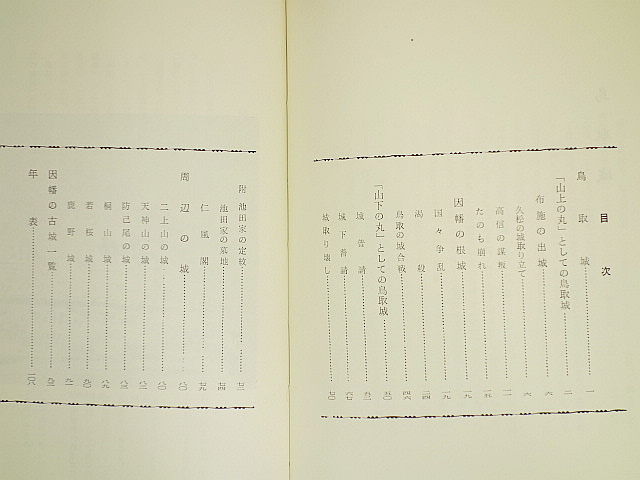 目次
鳥取城……一
「山上の丸」としての鳥取城……二
布施の出城……六
久松の城取り立て……六
高信の謀叛……一一
たのも崩れ……一五
因幡の根城……一九
国々争乱……一九
渇殺……二四
鳥取の城合戦
「山下の丸」としての鳥取城……五〇
城普請……五一
城下普請……六七
城取り壊し……七〇
附 池田家の定紋……七三
池田家の墓地……七四
仁風閣……七九
周辺の城……八〇
二上山の城……八〇
天神山の城……八三
防己尾の城……八三
桐山城……八九
若桜城……九〇
鹿野城……九一
因幡の古城一覧……九三
年表……一〇八